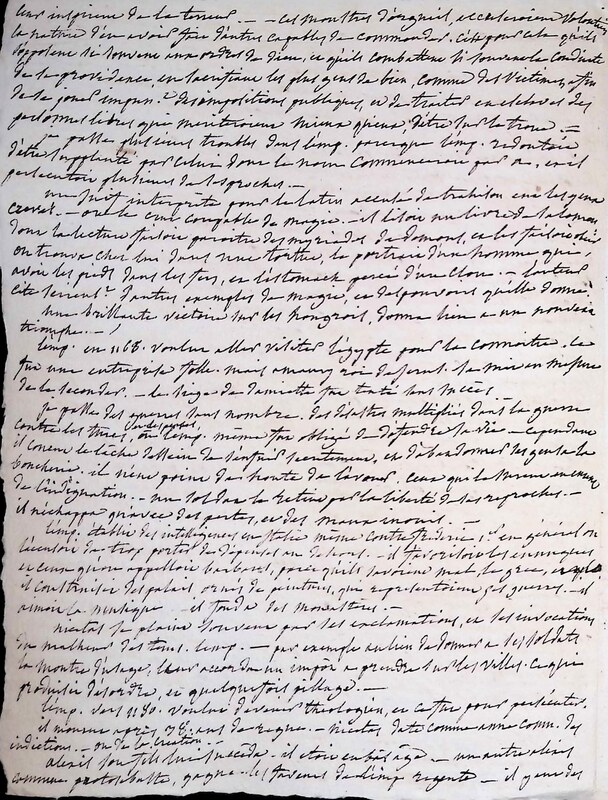 leur inspirer de la terreur. — ces monstres d'orgueil, accuseroient volontiers
la nature d'en avoir fait d'autres capables de commander. c'est pour cela qu'ils
s'opposent si souvent aux ordres de dieu, et qu'ils combattent si souvent la conduite
de sa providence, en sacrifiant les plus gens de bien, comme des victimes, afin
de se jouer impun.t des impositions publiques, et de traiter en esclaves des
personnes libres qui meriteroient mieux qu'eux, d'être sur la trone. —
je passe plusieurs troubles dans l'emp. parceque l'emp. redoutoit
d'être supplanté par celui dont le nom commenceroit par a, et il
persecutoit plusieurs de ses proches. —
un juif interprete pour le latin accusé de trahison eut les yeux
crevés. — on le crut coupable de magie. — il lisoit un livre de salomon,
dont la lecture faisoit paroitre des myriades de demons, et les faisoit obéir
on trouva chez lui dans une tortue, le portrait d'un homme qui
avoit les pieds dans les fers, et l'estomach percé d'un clou. — l'auteur
cite serieus.t d'autres exemples de magie, et des pouvoirs qu'elle donne.
une brillante victoire sur les hongrois, donna lieu a un nouveau
triomphe. —
l'emp. en 1168. voulut aller visiter l'égypte pour la connoitre. ce
fut une entreprise folle. mais amaury roi de jerus. se mit en mesure
de le seconder. — le siege de damiette fut tenté sans succès. —
je passe des guerres sans nombre. des désastres multipliés dans la guerre
contre les turcs, ou l'emp. même fut obligé de defendre sa vie — cependant
il conçut le lâche dessein de s'enfuir secretement, et d'abandonner ses gens a la
boucherie. il n'eut point de honte de l'avouer. ceux qui
de l'indignation. — un soldat le retint par la liberté de ses reproches. —
il n'échappa qu'avec des pertes, et des maux inouis. —
l'emp. établit des intelligences en italie même contre frederic 1.er en général on
l'accusoit de trop porter de dépenses au dehors. — il favorisoit les eunuques
et ceux qu'on appelloit barbares, parce qu'ils savoient mal le grec,
il construisit des palais ornés de peintures, qui representoient ses guerres. — il
aimoit la musique — il fonda des monasteres. —
nicetas se plaint souvent par ses exclamations, et ses invocations
du malheur des tems. l'emp. — par exemple au lieu de donner a ses soldats
la montre d'usage, leur accorda un impôt a prendre sur les villes. ce qui
produisit desordre, et quelquefois pillage. —
l'emp. vers 1180. voulut devenir theologien, et ce fut pour persécuter.
il mourut après 38. ans de regne. — nicetas date comme anne comn. des
indictions. — ou de la creation. —
alexis son fils lui succede. il étoit en bas âge — un autre alexis
comnene protosebaste, gagna les faveurs de l'imp. regente — il y eut des